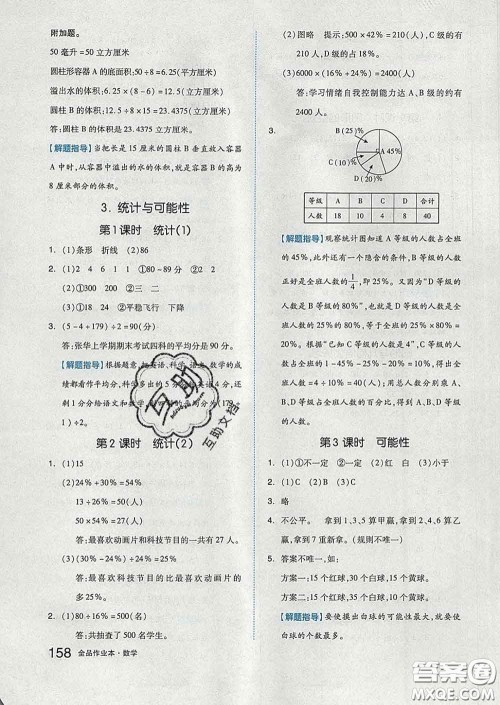 附加题。
50 毫升=50 立方厘米
圆柱形容器 A 的底面积:50÷8=6.25(平方厘米)
溢出水的体积:12.5÷8×15=23.4375(立方厘米)
圆柱 B 的体积:12.5÷8×15=23.4375(立方厘米)
答:圆柱 B 的体积是 23.4375 立方厘米。
【解题指导】当把长是 15 厘米的圆柱 B 垂直放入容器
A 中时,从容器中溢出的水的体积,就是圆柱 B 的高为
8 厘米部分的体积。
3. 统计与可能性
第 1 课时 统计(1)
1. (1)条形 折线 (2)86
2. (1)2 4 6 1 1 (2)80—89 分 (3)2 2
3. (1)①300 200 ②三 二
(2)①18 24 ②平稳飞行 下降
4. (5-4+179)÷2=90(分)
答:张华上学期期末考试四科的平均分是 90 分。
给语文和数学
1 分),除以 2。
第 2 课时 统计(2)
1. (1)15
(2)24%+30%=54%
13÷26%=50(人)
50×54%=27(人)
答:最喜欢动画片和科技节目的一共有 27 人。
答:最喜欢科技节目的比最喜欢动画片的多
25%。
2. (1)80÷16%=500(名)
答:共抽查了 500 名学生。
158 金品作业本·数学
(2)图略 提示:500×42%=210(人),C 级的有
210 人。
(3)6000×(16%+24%)=2400(人)
答:学习情绪自我控制能力达 A、B 级的约有
2400 人。
3.
B(25)%
A 45%
C(10)%
D(20)%
等级 A B C D 合计
人数 18 10 4 8 40
【解题指导】观察统计图知道 A 等级的人数占全班
的 45%,此外还有一个隐含的条件,B 等级的人数
正好是全班人数的1/4,即 25%。又因为“D 等级的
人数占 B 等级的 80%”,也就是占全班的 25%×80%=
20%。根据“C 等级的人数是 4”,C 等级的人数占全
班的 1-45%-25%-20%=10%,可以求出总人数是
4÷10%=40(人)。最后用总人数分别乘 A、
B、D 等级的人数占全班人数的百分比,得出 A、B、D
等级的人数。
第 3 课时 可能性
1. (1)①不一定 ②一定 (2)红 白 (3)小于
2. (1)C (2)B (3)B
3. 略
4. 不公平。 拿到 1,3,5 算甲赢,拿到 2,4,6 算乙
赢,拿到 7 重新拿。(规则不唯一)
5. 答案不唯一,如:
方案一:15 个红球,30 个白球,15 个黄球。
方案二:15 个红球,35 个白球,10 个黄球。
【解题指导】要使摸出白球的可能性最大,就要使
白球的个数最多。
互助
互助文档
答案圈
MXQE.COM